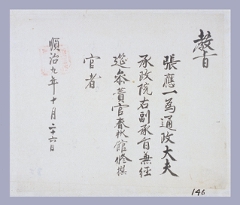 敎旨
張應一爲通政大夫
承政院右副承旨兼經
筵參贊官春秋館修撰
官者
順治九年十月二十六日
146